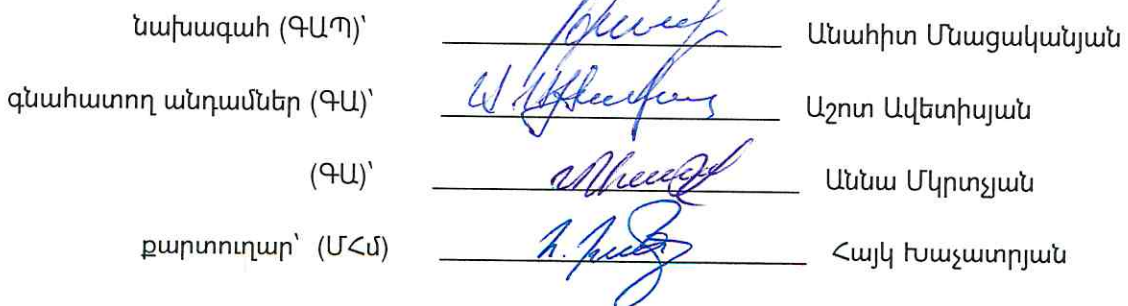 նախագահ (ԳԱՊ)՝ Անահիտ Մնացականյան
գնահատող անդամներ (ԳԱ)՝ Աշոտ Ավետիսյան
(ԳԱ)՝ Աննա Մկրտչյան
քարտուղար՝ (ՄՀմ) Հայկ Խաչատրյան